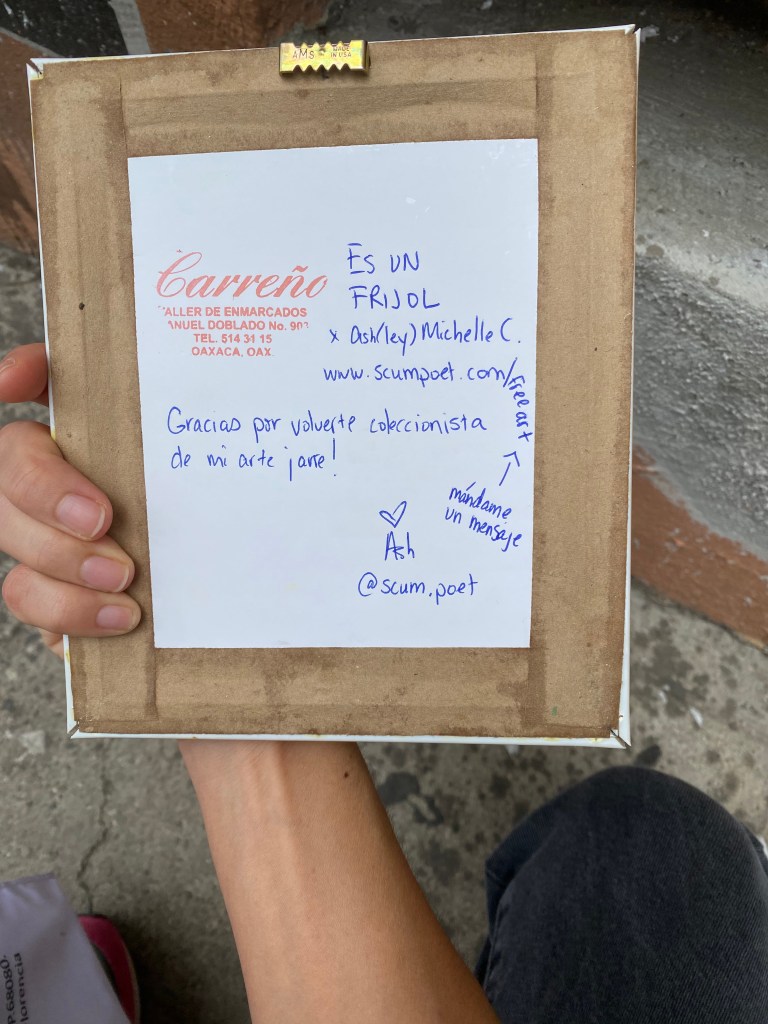 AMS MADE
IN USA
Carreño
TALLER DE ENMARCADOS
ANUEL DOBLADO No. 902
TEL. 514 31 15
OAXACA, OAX.
ES UN
FRIJOL
x Ash(ley) Michelle C.
www.scumpoet.com/freeart
Gracias por volverte coleccionista
de mi arte ¡arre!
mándame
un mensaje
Ash
@scum.poet
P. 68080.
lorencia